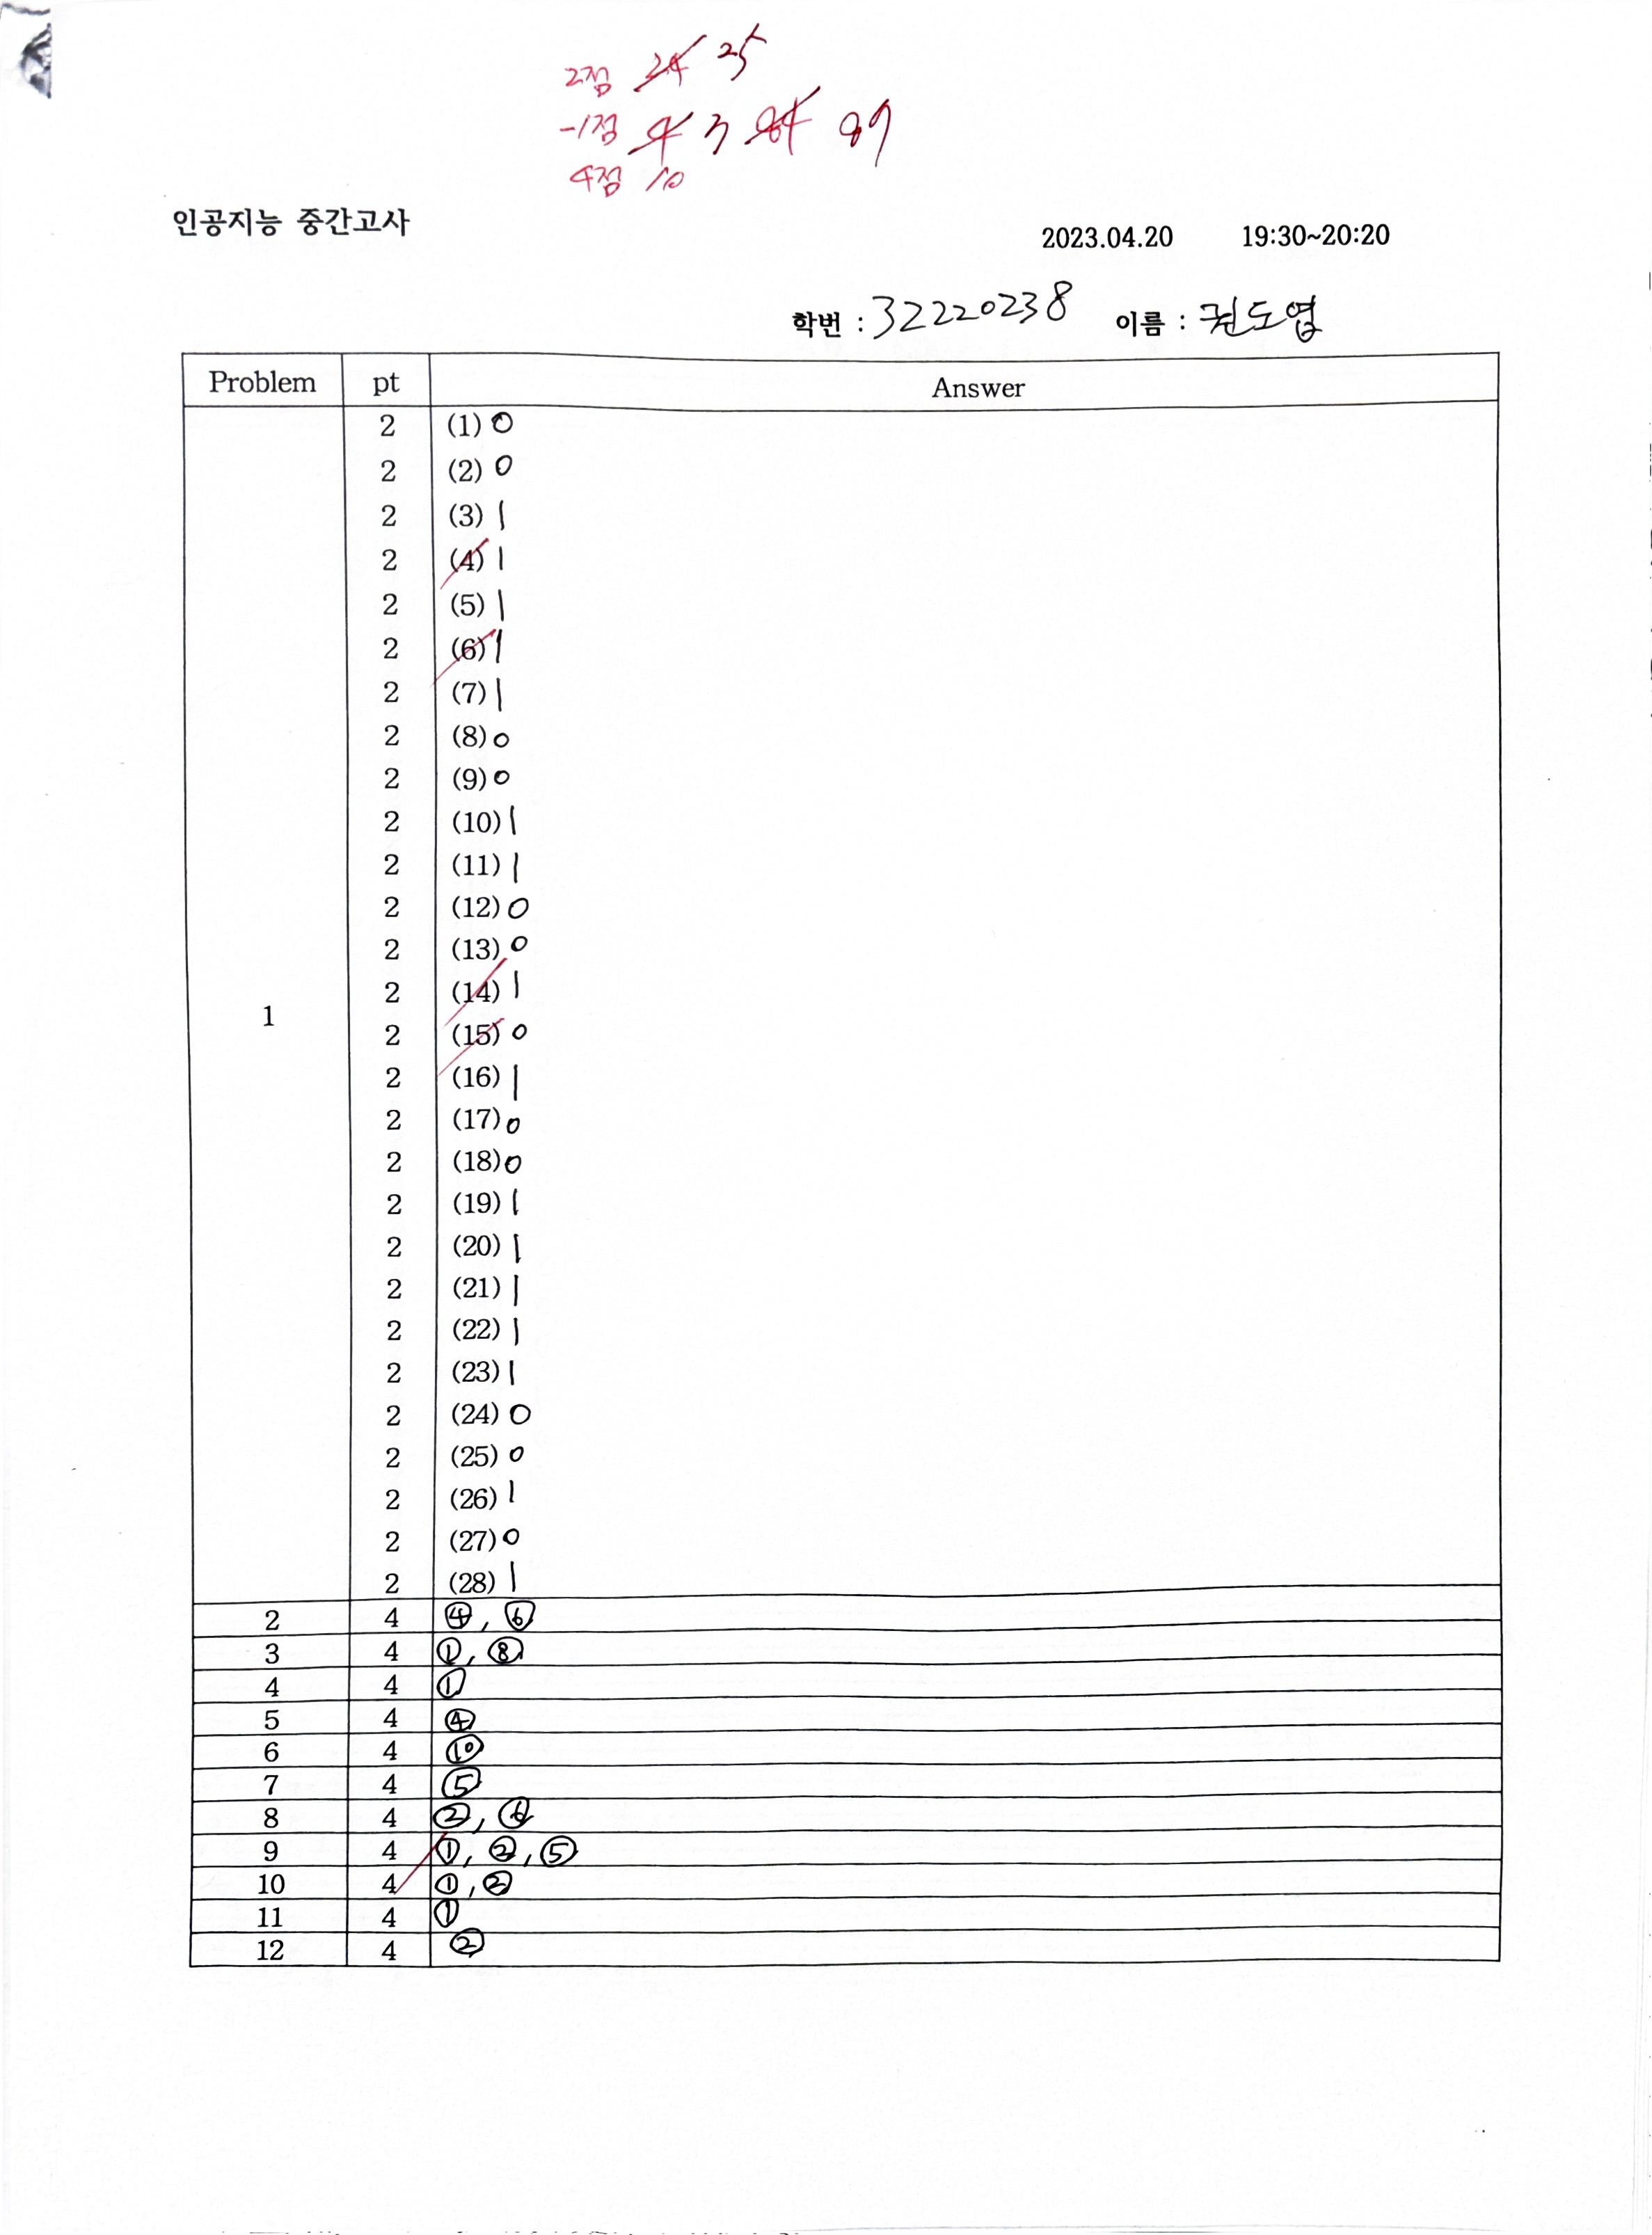 2점 24 25
-1점 4 3 84 87
4점 10
인공지능 중간고사
2023.04.20 19:30~20:20
학번 : 32220238 이름 : 권도엽
Problem pt Answer
2 (1) 0
2 (2) 0
2 (3) 1
2 (4) 1
2 (5) 1
2 (6) 1
2 (7) 1
2 (8) 0
2 (9) 0
2 (10) 1
2 (11) 1
2 (12) 0
2 (13) 0
2 (14) 1
1 2 (15) 0
2 (16) 1
2 (17) 0
2 (18) 0
2 (19) 1
2 (20) 1
2 (21) 1
2 (22) 1
2 (23) 1
2 (24) 0
2 (25) 0
2 (26) 1
2 (27) 0
2 (28) 1
2 4 ④, ⑥
3 4 ①, ⑧
4 4 ①
5 4 ④
6 4 ⑩
7 4 ⑤
8 4 ②, ⑥
9 4 ①, ②, ⑤
10 4 ①, ②
11 4 ①
12 4 ②